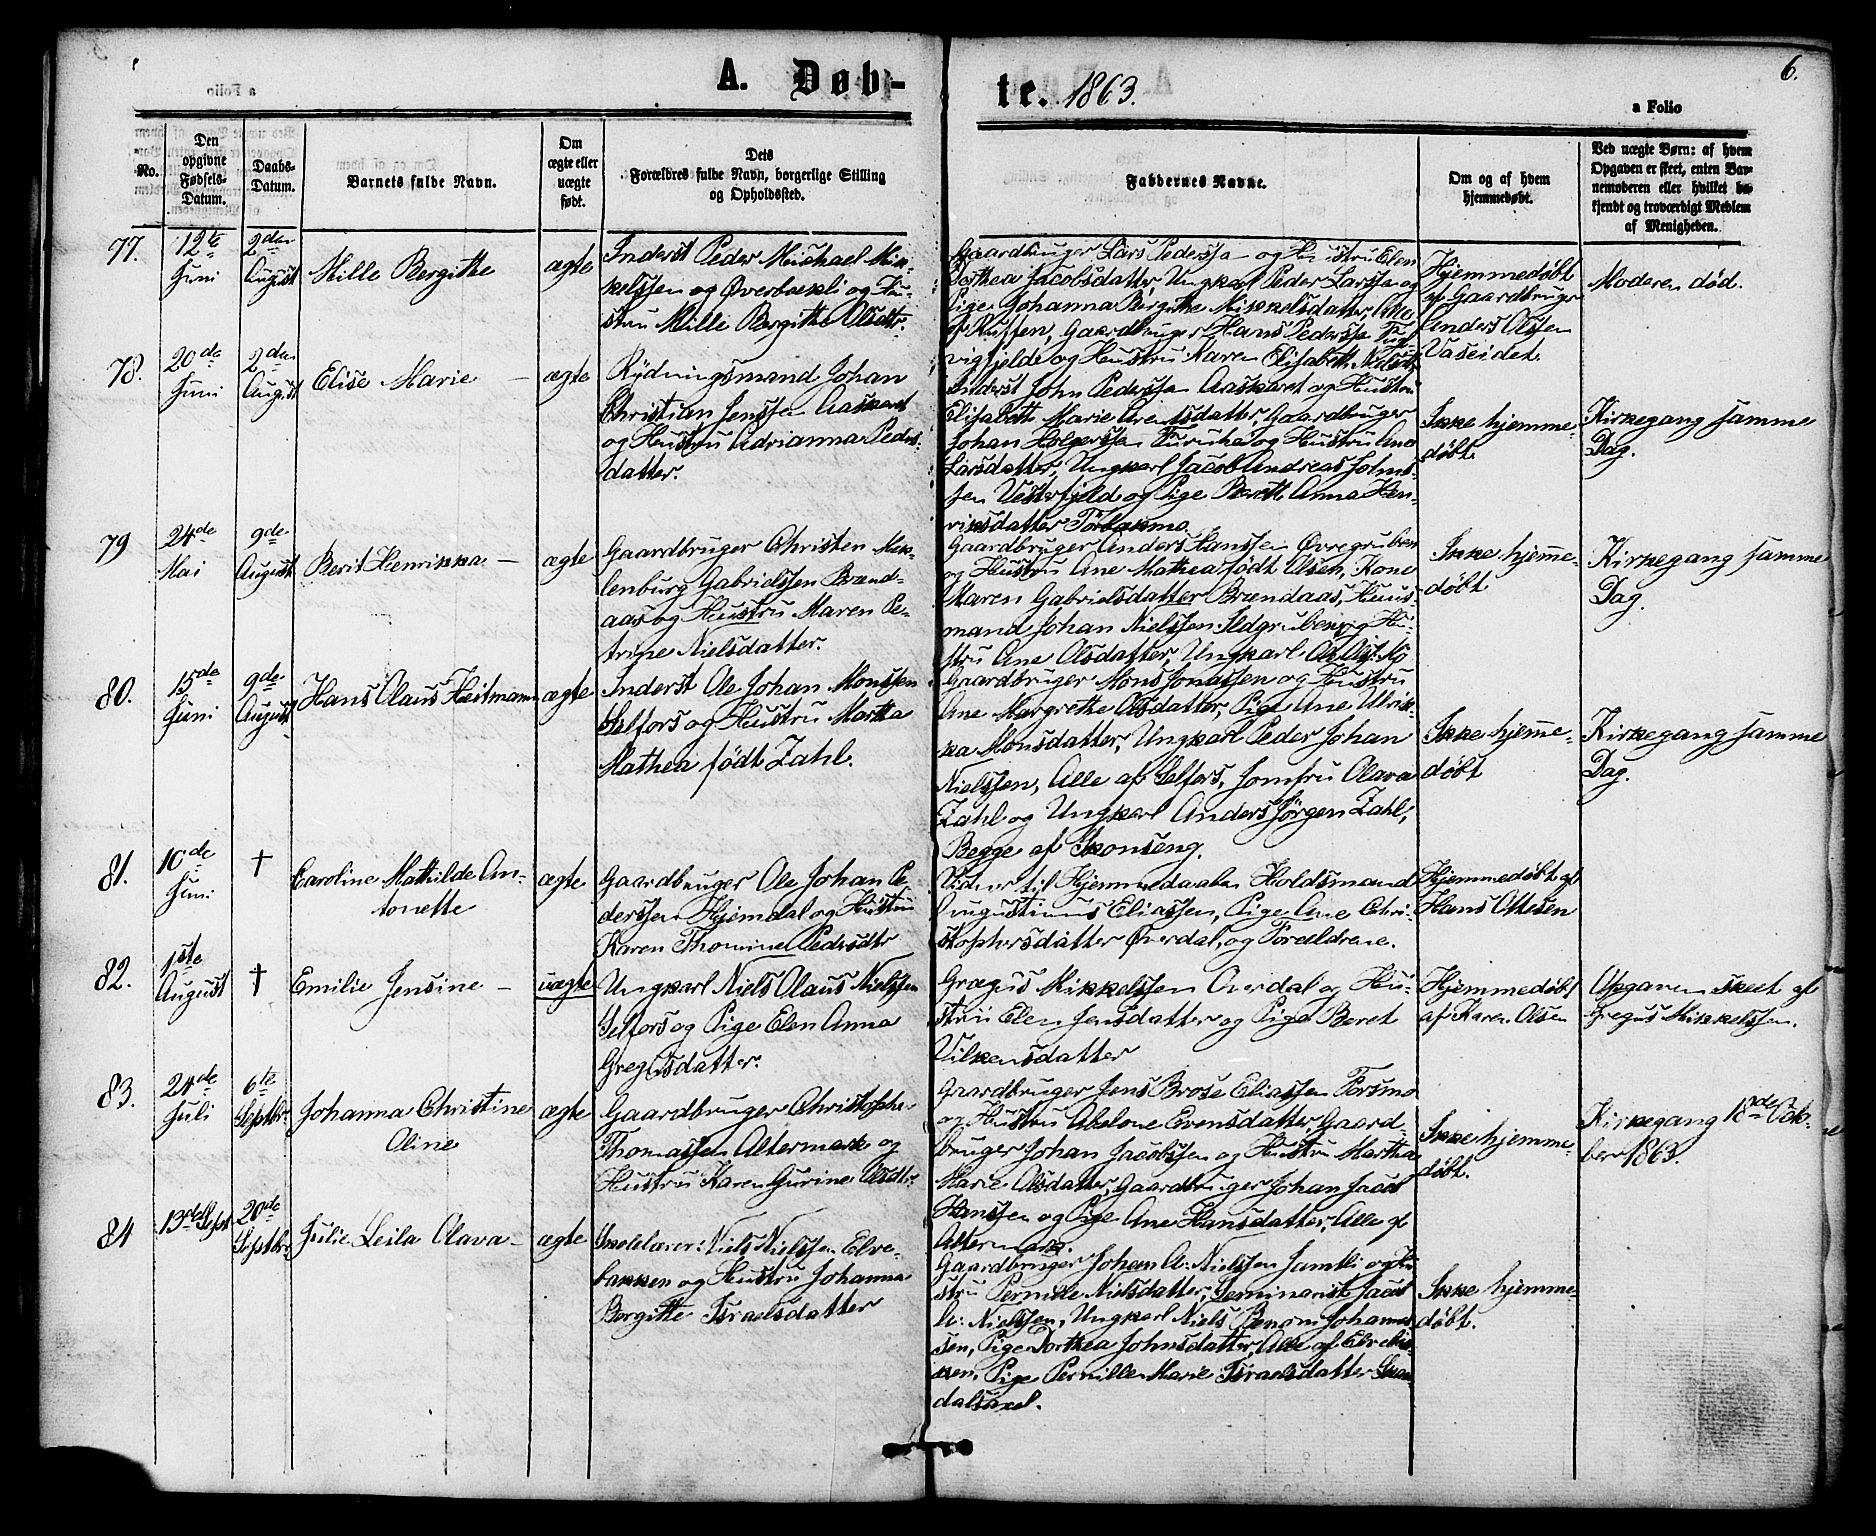 A. Døb-
te. 1863.
6.
a Folio
No.
Den opgivne Fødsels-Datum.
Daabs-Datum.
Barnets fulde Navn.
Om ægte eller uægte født.
Dets Forældres fulde Navn, borgerlige Stilling og Opholdssted.
Faddernes Navne.
Om og af hvem hjemmedøbt.
Ved uægte Børn: af hvem Opgaven er skeet, enten Barnemoderen eller hvilket bekjendt og troværdigt Medlem af Menigheden.
77.
12te Juni
2den August
Mille Bergitte
ægte
Inderst Peder Michael Mik-
kelssen og Øverbækli og Hu-
stru Mille Bergitte Olsdtr.
Gaardbruger Lars Pederssen og Hustru Elen
Dorthea Jacobsdatter, Ungkarl Peder Larssen og
Pige Johanna Bergitte Mikkelsdatter, Alle
Gaardbruger Hans Pederssen
og Hustru Maren Elisabeth
Hjemmedøbt
af Gaardbruger
Anders Olsen
Vaseidet.
Moderen død.
78.
20de Juni
2den August
Elise Marie —
ægte
Rydningsmand Johan
Christian Jenssen Aaskaret
og Hustru Adrianna Peders-
datter.
Inderst John Pederssen Aaskaret og Hustru
Elisabeth Marie Arentsdatter, Gaardbruger
Johan Holgerssen Furuhei og Hustru Ane
Larsdatter, Ungkarl Jacob Andreas Johns-
sen Vesterfjeld og Pige Berett Anna Hen-
riksdatter
Ikke hjemme-
døbt.
Kirkegang samme
Dag.
79
24de Mai
9de August
Berit Henrikka —
ægte
Gaardbruger Christen Mek-
lenburg Gabrielssen Brænd-
aas og Hustru Maren Pe-
trine Nielsdatter.
Gaardbruger Anders Hanssen Øvregruben
og Hustru Ane Mathea født Olsen, Kone
Maren Gabrielsdatter Brændaas, Huus-
mand Johan Nielssen Ildgruben og Hu-
stru Ane Olsdatter, Ungkarl
Ikke hjemme-
døbt
Kirkegang samme
Dag.
80.
15de Juni
9de August
Hans Olaus Heitmann
ægte
Inderst Ole Johan Monssen
Selfors og Hustru Martha
Mathea født Zahl.
Gaardbruger Mons Jonassen og Hustru
Ane Margrethe Olsdatter, Pige Ane Ulrik-
ka Monsdatter, Ungkarl Peder Johan
Nielssen, Alle af Selfors, Jomfru Olava
Zahl og Ungkarl Anders Jørgen Zahl,
Begge af Skonseng.
Ikke hjemme-
døbt
Kirkegang samme
Dag.
81.
10de Juni
†
Caroline Mathilde An-
tonette
ægte
Gaardbruger Ole Johan Pe-
derssen Hjemdal og Hustru
Karen Thomine Pedersdtr
Vidner til Hjemmedaaben Holdsmand
Augustinus Eliassen, Pige Ane Chri-
stophersdatter Øverdal, og Forældrene.
Hjemmedøbt af
Hans Ottesen
82.
1ste August
†
Emilie Jensine —
uægte
Ungkarl Niels Olaus Nielssen
Selfors og Pige Elen Anna
Gregusdatter.
Gregus Mikkelssen Overdal og Hu-
stru Elen Jensdatter og Pige Beret
Vilkensdatter
Hjemmedøbt
af Karen Olsen
Opgaven skeet af
Gregus Mikkelssen.
83.
24de Juli
6te Septbr.
Johanna Christine
Oline
ægte
Gaardbruger Christopher
Thomassen Altermark og
Hustru Karen Gurine Olsdtr.
Gaardbruger Jens Brose Eliassen Forsmo
og Hustru Abelone Evensdatter, Gaard-
bruger Johan Jacobssen og Hustru Martha
Marie Olsdatter, Gaardbruger Johan Jacob
Hanssen og Pige Ane Hansdatter, Alle af
Altermark.
Ikke hjemme-
døbt.
Kirkegang 18de Okto-
ber 1863.
84
13de Sept
20de Septbr.
Julie Leila Olava —
ægte
Skolelærer: Niels Nielssen Elve-
bakken og Hustru Johanna
Bergitte Israelsdatter
Gaardbruger Johan A: Nielssen Jamtli og Hu-
stru Pernille Nielsdatter, Seminarist Jacob
A: Nielssen, Ungkarl Niels Benoni Johannes-
sen, Pige Dorthea Johnsdatter, Alle af Elvebak-
ken, Pige Pernille Marie Israelsdatter
Ikke hjemme-
døbt.